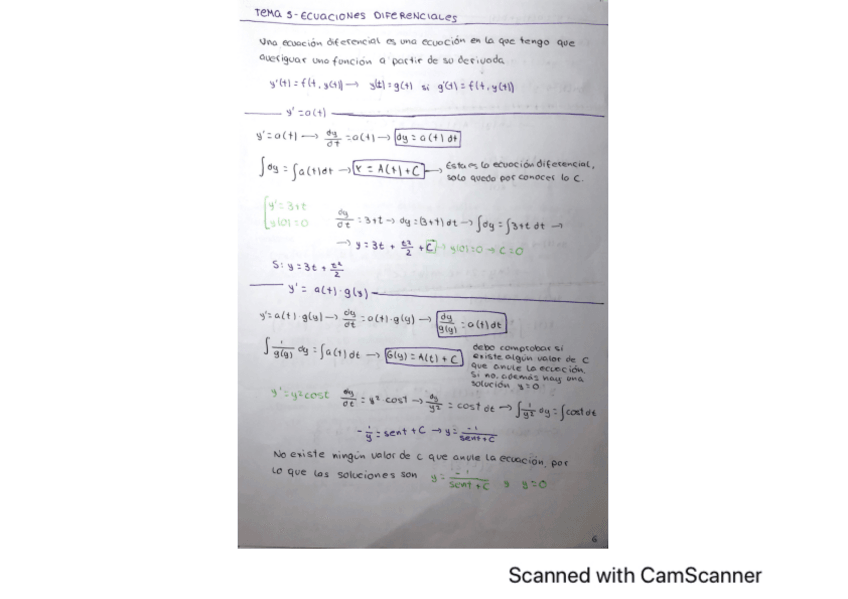 TEMA 5-ECUACIONES DIFERENCIALES
Una ecuación diferencial es una ecuación en la que tengo que
averiguar una función a partir de su derivada
y'(t) = f(t, y(t)) → y(t) = g(t) si g'(t) = f(t, y(t))
y' = a(t)
y' = a(t) → dy/dt = a(t) → dy = a(t) dt
∫dy = ∫a(t)dt → Y = A(t) + C → Esta es la ecuación diferencial,
solo queda por conocer la C.
y' = 3+t
y(0) = 0
dy/dt = 3+t → dy = (3+t) dt → ∫dy = ∫3+t dt →
→ y = 3t + t²/2 + C → y(0) = 0 → C = 0
S: y = 3t + t²/2
y' = a(t) · g(y)
y' = a(t) · g(y) → dy/dt = a(t) · g(y) → dy/g(y) = a(t) dt
∫ 1/g(y) dy = ∫a(t) dt → G(y) = A(t) + C
debo comprobar si
existe algún valor de C
que anule la ecuación.
Si no, además hay una
solución y=0
y' = y² cost dy/dt = y² cost → dy/y² = cost dt → ∫ 1/y² dy = ∫cost dt
- 1/y = sent + C → y = -1/sent+C
No existe ningún valor de C que anule la ecuación, por
lo que las soluciones son y = -1/sent+C y y=0
6
Scanned with CamScanner